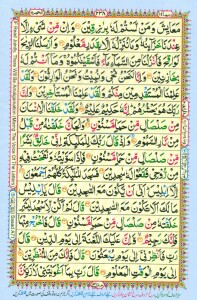 مَعَايِشَ وَمَنْ لَّسْتُمْ لَهٗ بِرٰزِقِيْنَ وَاِنْ مِّنْ شَيْءٍ اِلَّا
عِنْدَنَا خَزَآئِنُهٗ وَمَا نُنَزِّلُهٗٓ اِلَّا بِقَدَرٍ مَّعْلُوْمٍ وَاَرْسَلْنَا الرِّيٰحَ
لَوَاقِحَ فَاَنْزَلْنَا مِنَ السَّمَآءِ مَآءً فَاَسْقَيْنٰكُمُوْهُ وَمَآ اَنْتُمْ لَهٗ
بِخٰزِنِيْنَ وَاِنَّا لَنَحْنُ نُحْيٖ وَنُمِيْتُ وَنَحْنُ الْوٰرِثُوْنَ وَلَقَدْ
عَلِمْنَا الْمُسْتَقْدِمِيْنَ مِنْكُمْ وَلَقَدْ عَلِمْنَا الْمُسْتَاْخِرِيْنَ وَاِنَّ
رَبَّكَ هُوَ يَحْشُرُهُمْ اِنَّهٗ حَكِيْمٌ عَلِيْمٌ وَلَقَدْ خَلَقْنَا الْاِنْسَانَ
مِنْ صَلْصَالٍ مِّنْ حَمَاٍ مَّسْنُوْنٍ وَالْجَآنَّ خَلَقْنٰهُ مِنْ قَبْلُ
مِنْ نَّارِ السَّمُوْمِ وَاِذْ قَالَ رَبُّكَ لِلْمَلٰٓئِكَةِ اِنِّيْ خَالِقٌۢ بَشَرًا
مِّنْ صَلْصَالٍ مِّنْ حَمَاٍ مَّسْنُوْنٍ فَاِذَا سَوَّيْتُهٗ وَنَفَخْتُ فِيْهِ
مِنْ رُّوْحِيْ فَقَعُوْا لَهٗ سٰجِدِيْنَ فَسَجَدَ الْمَلٰٓئِكَةُ كُلُّهُمْ اَجْمَعُوْنَ
اِلَّآ اِبْلِيْسَ اَبٰٓى اَنْ يَّكُوْنَ مَعَ السّٰجِدِيْنَ قَالَ يٰٓاِبْلِيْسُ
مَا لَكَ اَلَّا تَكُوْنَ مَعَ السّٰجِدِيْنَ قَالَ لَمْ اَكُنْ لِّاَسْجُدَ لِبَشَرٍ
خَلَقْتَهٗ مِنْ صَلْصَالٍ مِّنْ حَمَاٍ مَّسْنُوْنٍ قَالَ فَاخْرُجْ مِنْهَا
فَاِنَّكَ رَجِيْمٌ وَّاِنَّ عَلَيْكَ اللَّعْنَةَ اِلٰى يَوْمِ الدِّيْنِ قَالَ رَبِّ
فَاَنْظِرْنِيْٓ اِلٰى يَوْمِ يُبْعَثُوْنَ قَالَ فَاِنَّكَ مِنَ الْمُنْظَرِيْنَ
اِلٰى يَوْمِ الْوَقْتِ الْمَعْلُوْمِ قَالَ رَبِّ بِمَآ اَغْوَيْتَنِيْ لَاُزَيِّنَنَّ